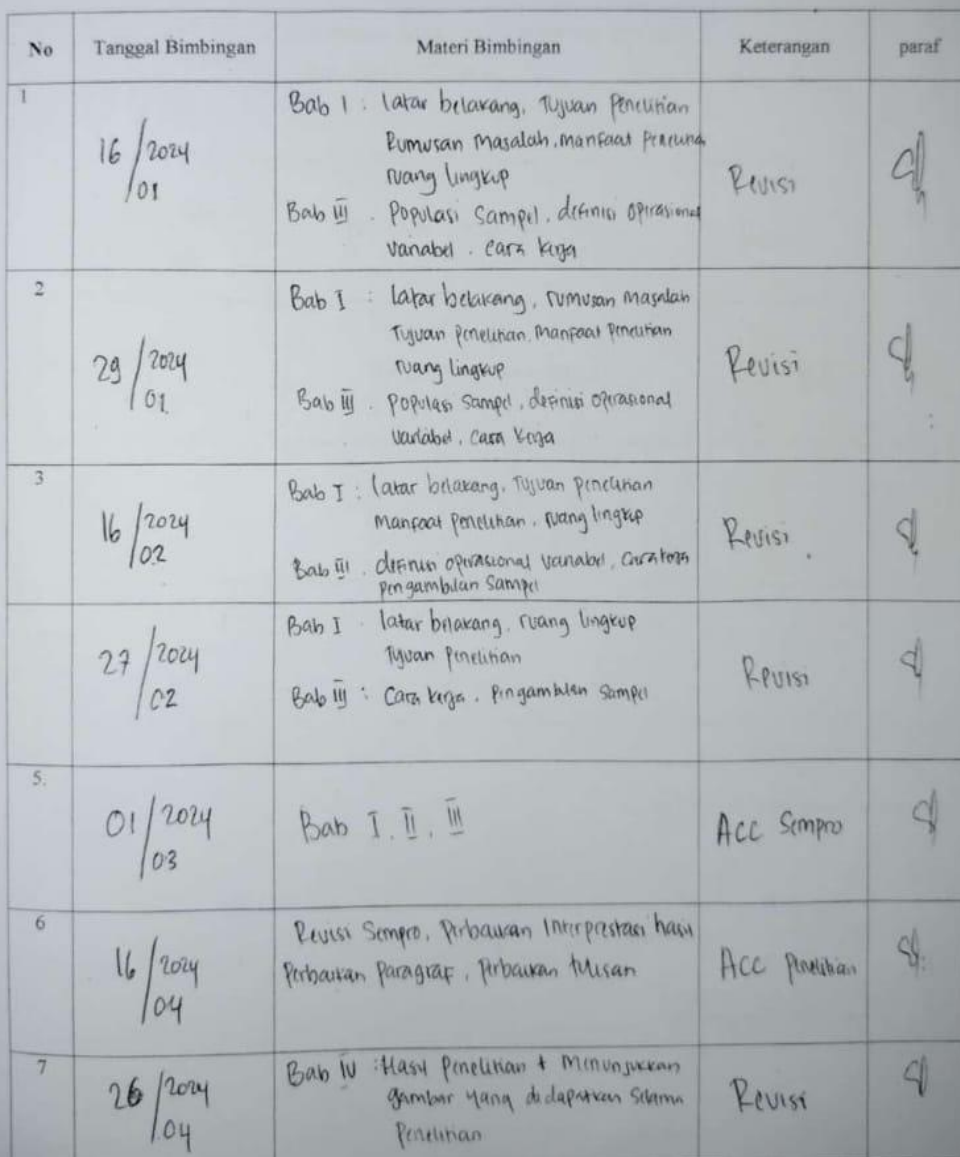 No Tanggal Bimbingan Materi Bimbingan Keterangan paraf
1
16/01 2024
Bab I : latar belakang, Tujuan Penelitian
Rumusan Masalah, manfaat
ruang lingkup
Bab III . Populasi Sampel, definisi operasional
variabel . cara kerja
Revisi
2
29/01 2024
Bab I : latar belakang, rumusan masalah
Tujuan Penelitian, Manfaat Penelitian
ruang lingkup
Bab III . Populasi Sampel, definisi operasional
variabel, cara kerja
Revisi
3
16/02 2024
Bab I : latar belakang, Tujuan penelitian
Manfaat penelitian, ruang lingkup
Bab III . definisi operasional variabel, cara kerja
pengambilan sampel
Revisi
27/02 2024
Bab I . latar belakang, ruang lingkup
Tujuan Penelitian
Bab III : Cara kerja, Pengambilan Sampel
Revisi
5.
01/03 2024
Bab I, II, III
ACC Sempro
6
16/04 2024
Revisi Sempro, Perbaikan Interprestasi hasil
Perbaikan Paragraf, Perbaikan tulisan
ACC Penelitian
7
26/04 2024
Bab IV : Hasil Penelitian + Menunjukkan
gambar yang didapatkan Selama
Penelitian
Revisi